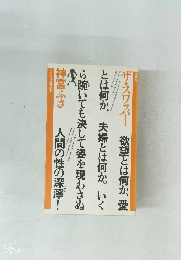 ザ・スワッパー
欲望とは何か、愛
とは何か、夫婦とは何か。いく
ら踠いても決して姿を現わさぬ
人間の性の深淵！
神宮ふさ